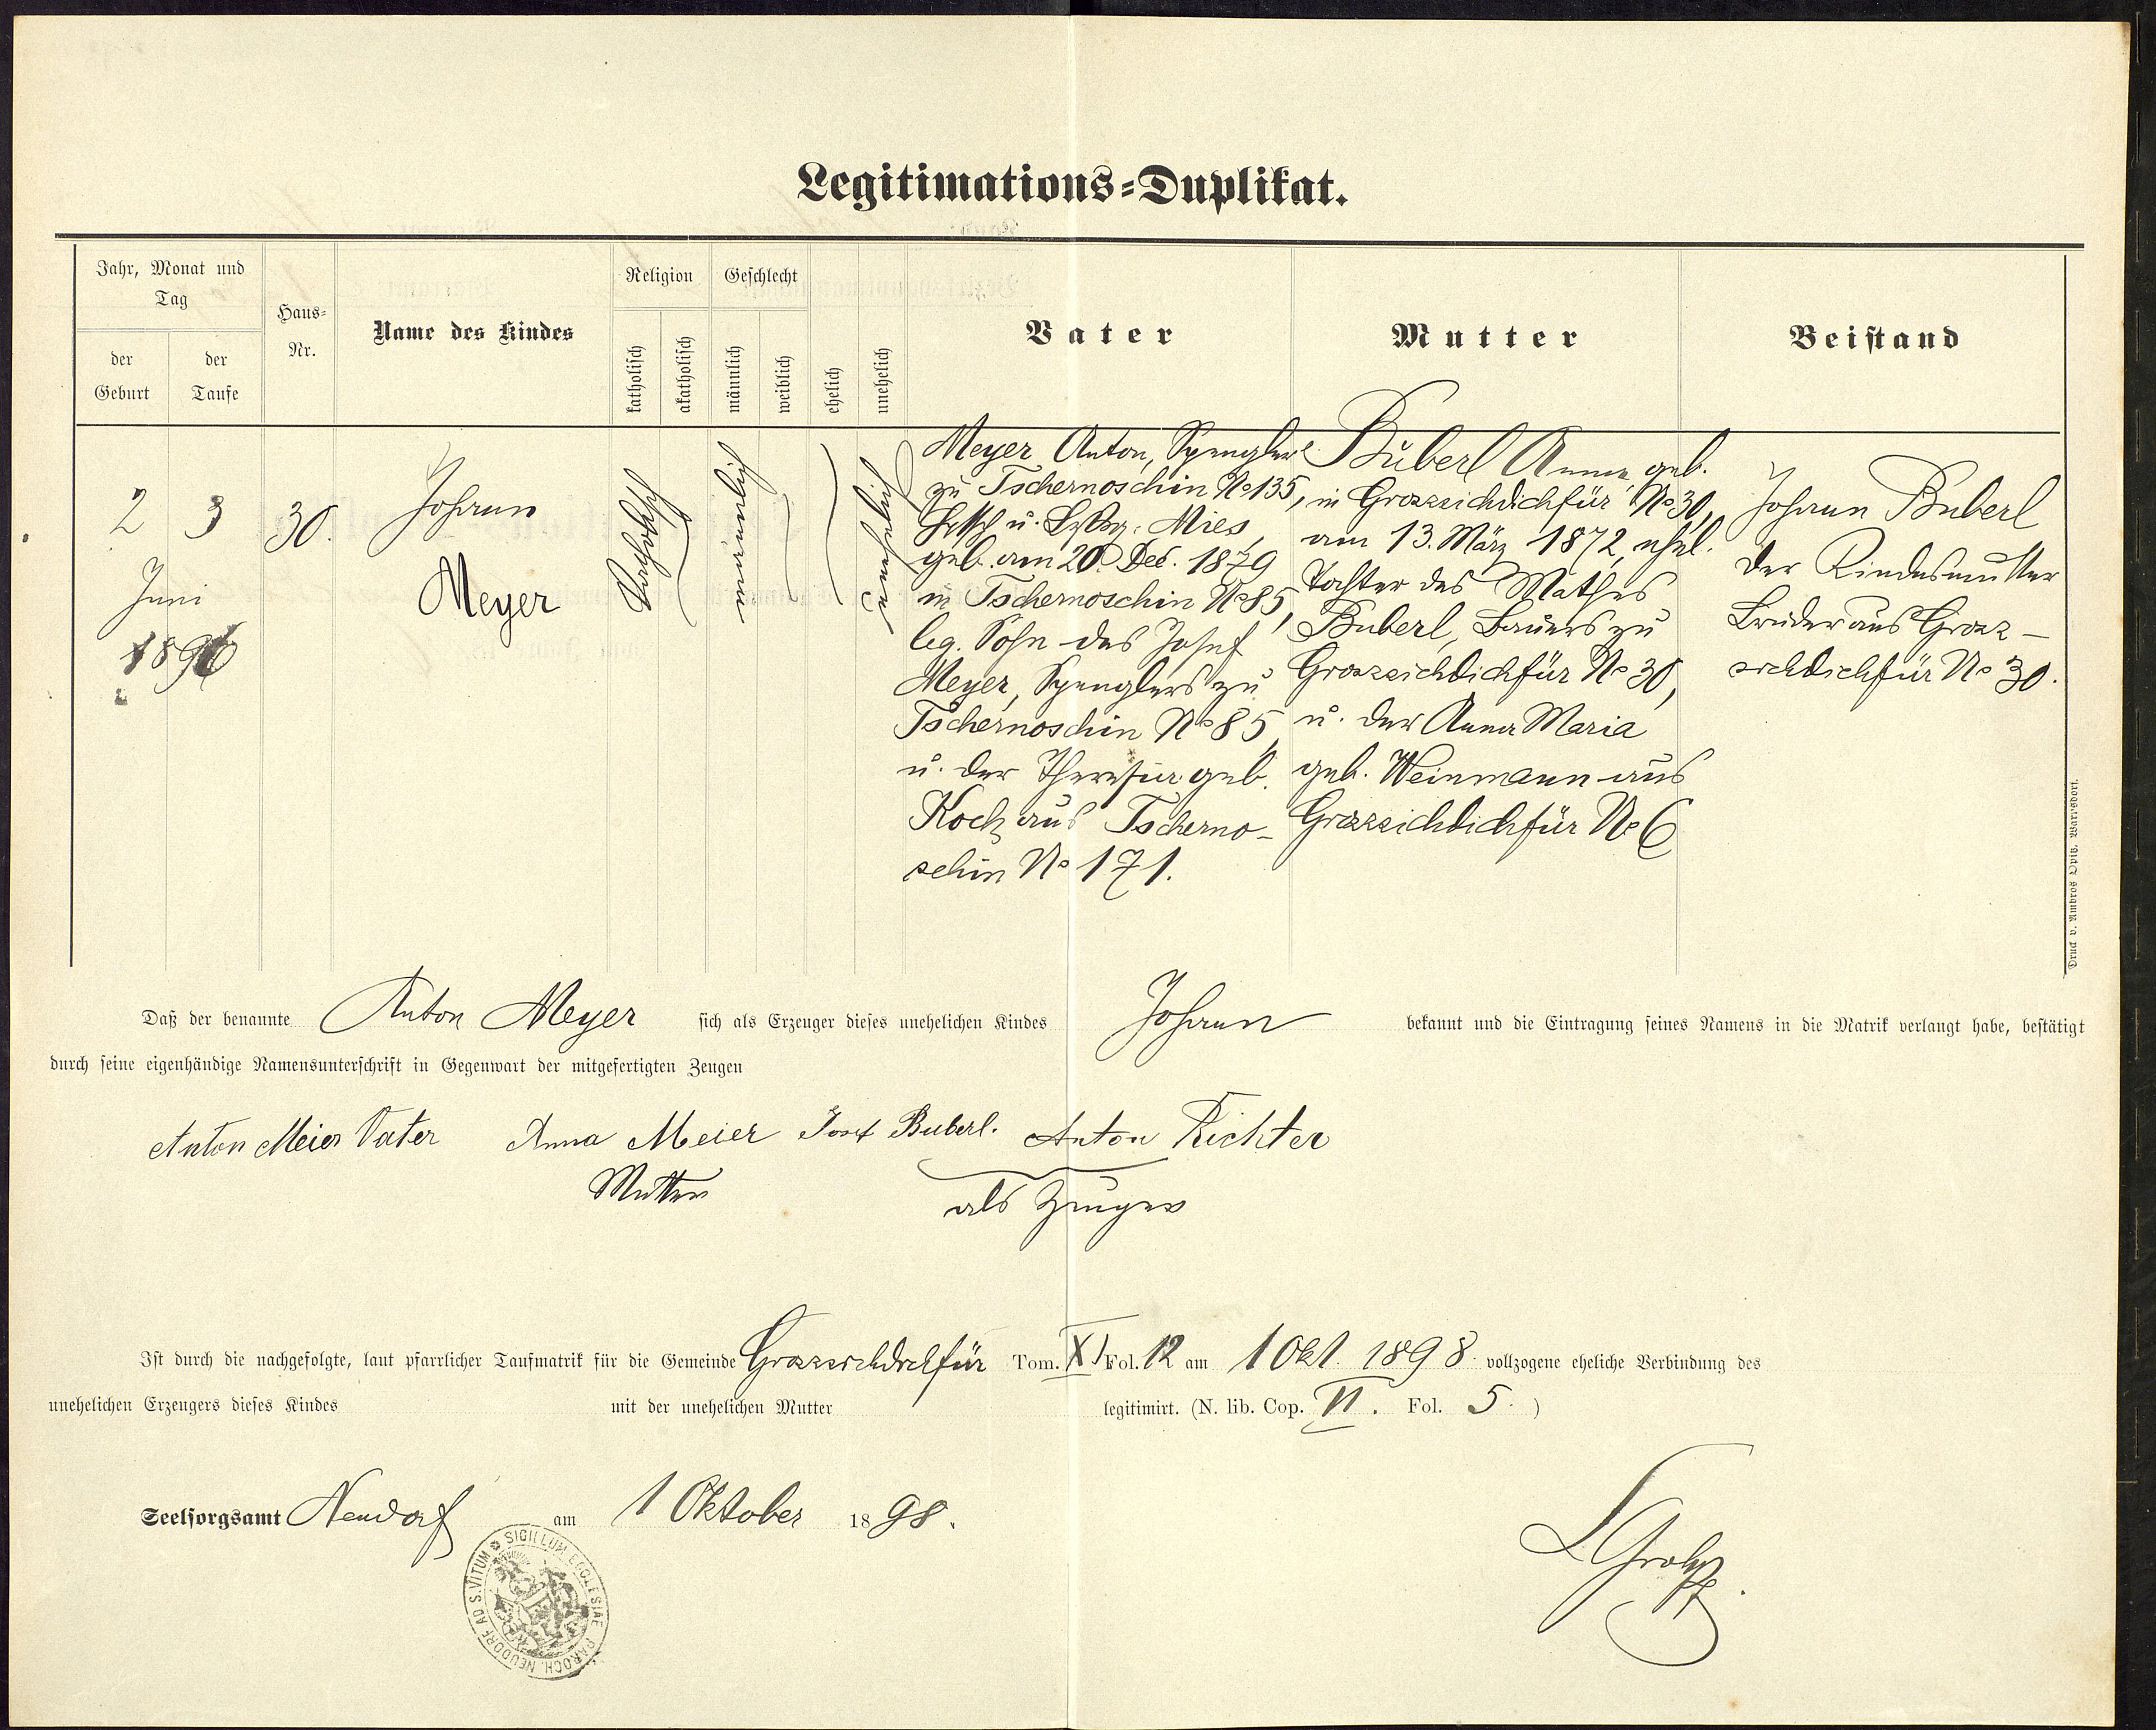 Legitimations=Duplikat.
Jahr, Monat und Tag
der Geburt
der Taufe
Haus=Nr.
Name des Kindes
Religion
katholisch
akatholisch
Geschlecht
männlich
weiblich
ehelich
unehelich
Vater
Mutter
Beistand
2 3
Juni
1896
30.
Johann
Meyer
katholisch
männlich
unehelich
Meyer Anton, Spengler
zu Tschernoschin No 135,
Mies,
geb. am 20. Dec. 1879
in Tschernoschin No 85,
leg. Sohn des Josef
Meyer, Spenglers zu
Tschernoschin No 85,
u. der Theresia geb.
Koch aus Tscherno-
schin No 171.
Buberl Anna, geb.
in Grosssichdichfür No 30,
am 13. März 1872, ehel.
Tochter des Mathes
Buberl, Bauers zu
Grosssichdichfür No 30,
u. der Anna Maria
geb. Weinmann aus
Grosssichdichfür No 6
Johann Buberl
der Kindesmutter
Bruder aus Gross-
sichdichfür No 30.
Druck v. Ambros Opitz, Warnsdorf.
Daß der benannte Anton Meyer sich als Erzeuger dieses unehelichen Kindes Johann bekannt und die Eintragung seines Namens in die Matrik verlangt habe, bestätigt
durch seine eigenhändige Namensunterschrift in Gegenwart der mitgefertigten Zeugen
Anton Meier Vater Anna Meier Josef Buberl. Anton Richter
Mutter als Zeugen
Ist durch die nachgefolgte, laut pfarrlicher Taufmatrik für die Gemeinde Grosssichdichfür Tom. XI Fol. 12 am 1 Okt. 1898. vollzogene eheliche Verbindung des
unehelichen Erzeugers dieses Kindes mit der unehelichen Mutter legitimirt. (N. lib. Cop. VI. Fol. 5.)
Seelsorgsamt Neudorf am 1 Oktober 1898.
SIGILLUM ECCLESIAE PAROCH. NEUDORF AD S. VITUM